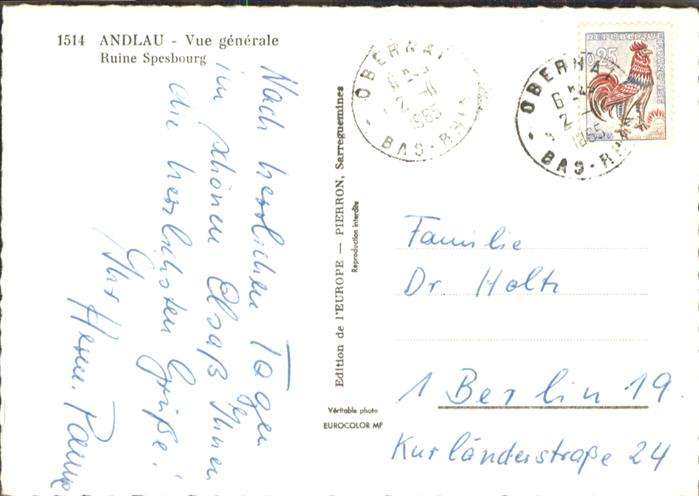 1514 ANDLAU - Vue générale
Ruine Spesbourg
Nach herrlichen Tagen
im schönen Elsaß Ihnen
die herzlichsten Grüße!
Ihr Herm.
Edition de l'EUROPE — PIERRON, Sarreguemines
Reproduction interdite
Véritable photo
EUROCOLOR MP
OBERNAI
1965
BAS-RHIN
OBERNAI
1965
BAS-RHIN
0,25
Familie
Dr. Holtz
1 Berlin 19.
Kurländerstraße 24